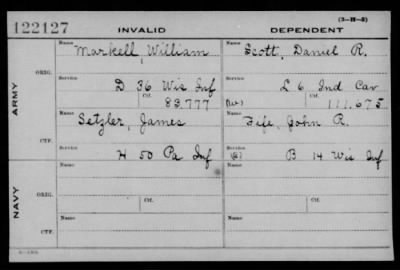 (3-H-2)
122127 INVALID DEPENDENT
ARMY
ORIG.
Name Markell William Name Scott, Daniel R.
Service D 36 Wis Inf Service L 6 Ind Cav
Ctf. 83,777 (W) Ctf. 111,675
CTF.
Name Setzler, James Name Fife, John R.
Service H 50 Pa Inf Service B 14 Wis Inf
NAVY
ORIG.
Name Name
Service Ctf. Service Ctf.
CTF.
Name Name
Service Service